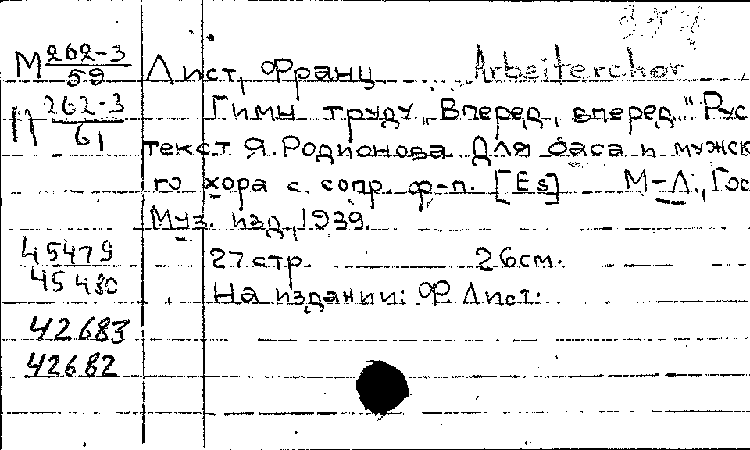 М 262-3/59 Лист, Франц Arbeiterchor
П 262-3/61 Гимн труду „Вперед, вперед" Рус
текст Я. Родионова Для баса и мужск
го хора с сопр. ф-п. [Es] М-Л., Гос
Муз. изд., 1939.
45479 27 стр. 26 см.
45480 На издании: Ф. Лист.
42683
42682